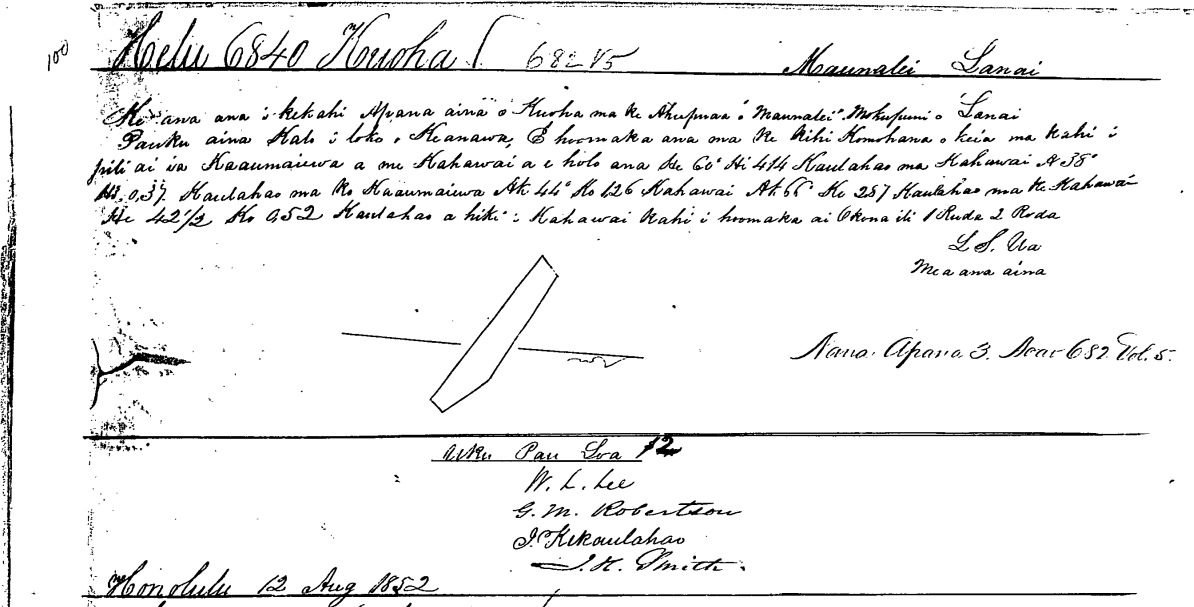 100
Helu 6840 Kuoha 682 V5 Maunalei Lanai
He ana ana i kekahi Apana aina o Kuoha ma ke Ahupuaa o Maunalei Mokupuni o Lanai
Pauku aina Kalo i loko o Keanawa, E hoomaka ana ma ke kihi Komohana o keia ma kahi i
pili ai ia Kaaumaiewa a me Kahawai a e holo ana He 60° Hi 414 Kaulahao ma Kahawai A 38°
0,37 Kaulahao ma ko Kaaumaiewa Ak 44° Ko 126 Kahawai Ak He 287 Kaulahao ma ke Kahawai
He 42 1/2 Ko 0,52 Kaulahao a hiki i Kahawai kahi i hoomaka ai Okona ili 1 Ruda 2 Roda
L S. Ua
Mea ana aina
Nana Apana 3. 682. Vol. 5.
Uku Pau Loa $2
W. L. Lee
G. M. Robertson
J. Kekaulahao
J. H. Smith.
Honolulu 12 Aug 1852